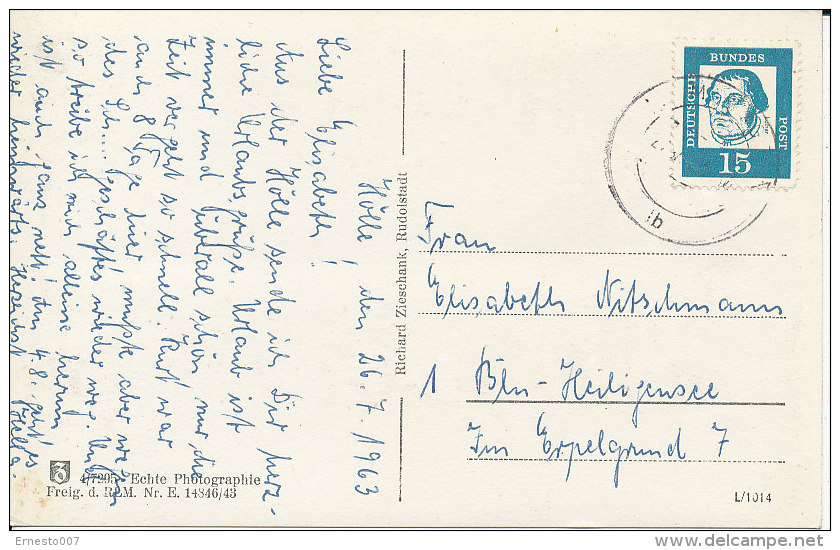 Hölle, den 26.7.1963
Liebe Elisabeth!
Aus der Hölle sende ich Dir herz-
liche Urlaubsgrüße. Urlaub ist
immer und überall schön nur die
Zeit vergeht so schnell. Kurt war
auch 8 Tage hier mußte aber wegen
des Geschäftes wieder weg. Nun
so treibe ich mich alleine herum
ist auch ganz nett! Am 4.8. geht es
wieder heimwärts. Herzlichst Hella
Richard Zieschank, Rudolstadt
4/7205 Echte Photographie
Freig. d. RLM. Nr. E. 14846/43
DEUTSCHE
BUNDES
POST
15
Ib
Frau
Elisabeth Nitschmann
1 Bln-Heiligensee
Im Erpelgrund 7
L/1014
Ernesto007
delcampe.net